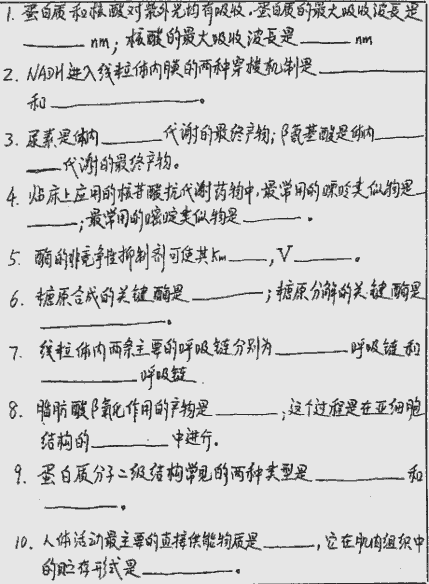 1. 蛋白质和核酸对紫外光均有吸收。蛋白质的最大吸收波长是
______ nm；核酸的最大吸收波长是 ______ nm
2. NADH进入线粒体内膜的两种穿梭机制是 ______
和 ______。
3. 尿素是体内 ______ 代谢的最终产物；β氨基酸是体内 ___
___ 代谢的最终产物。
4. 临床上应用的核苷酸抗代谢药物中，最常用的嘌呤类似物是
______；最常用的嘧啶类似物是 ______。
5. 酶的非竞争性抑制剂可使其Km ____，V ______。
6. 糖原合成的关键酶是 ______；糖原分解的关键酶是
______。
7. 线粒体内两条主要的呼吸链分别为 ______ 呼吸链和
______ 呼吸链
8. 脂肪酸β氧化作用的产物是 ______；这个过程是在亚细胞
结构的 ______ 中进行。
9. 蛋白质分子二级结构常见的两种类型是 ______ 和
______。
10. 人体活动最主要的直接供能物质是 ______，它在肌肉组织中
的贮存形式是 ______。